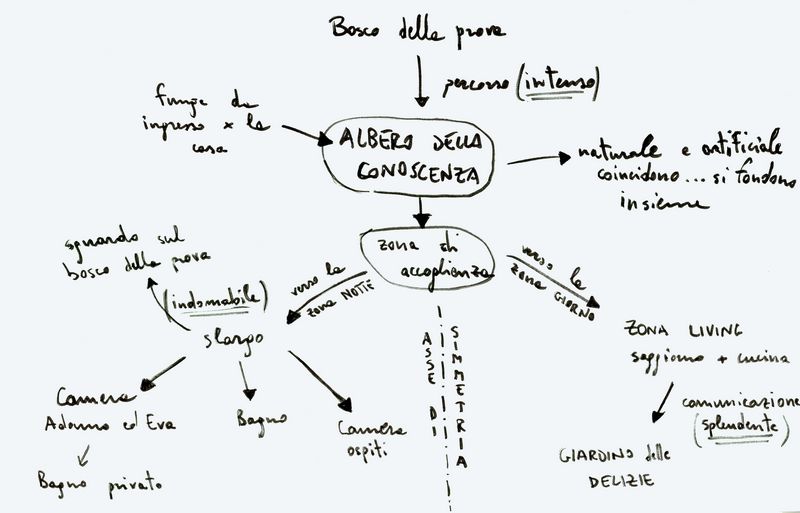 Bosco della prova
percorso (intenso)
funge da
ingresso x la
casa
ALBERO DELLA
CONOSCENZA
naturale e artificiale
coincidono... si fondono
insieme
zona di
accoglienza
sguardo sul
bosco della prova
(indomabile)
verso la
zona NOTTE
verso la
zona GIORNO
slargo
ASSE DI
SIMMETRIA
ZONA LIVING
soggiorno + cucina
Camera
Adamo ed Eva
Bagno
Camera
ospiti
comunicazione
(splendente)
Bagno privato
GIARDINO delle
DELIZIE